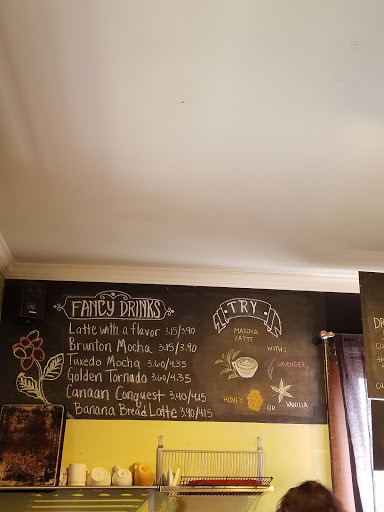 FANCY DRINKS
Latte with a flavor 3.15/3.90
Brunton Mocha 3.15/3.90
Tuxedo Mocha 3.60/4.35
Golden Tornado 3.60/4.35
Canaan Conquest 3.40/4.15
Banana Bread Latte 3.40/4.15
TRY
MATCHA
LATTE
WITH:
LAVENDER,
HONEY
OR
VANILLA